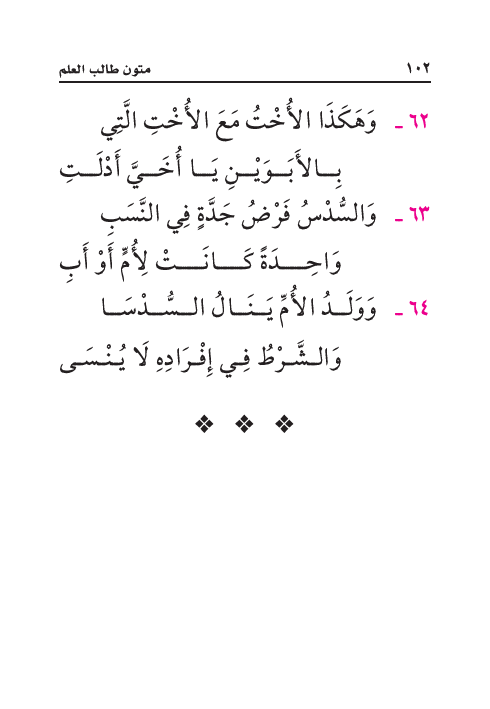 ١٠٢ متون طالب العلم
٦٢ ـ وَهَكَذَا الأُخْتُ مَعَ الأُخْتِ الَّتِي
بِـالأَبَوَيْـنِ يَـا أُخَـيَّ أَدْلَـتِ
٦٣ ـ وَالسُّدْسُ فَرْضُ جَدَّةٍ فِي النَّسَبِ
وَاحِـدَةً كَـانَـتْ لِأُمٍّ أَوْ أَبِ
٦٤ ـ وَوَلَـدُ الأُمِّ يَـنَـالُ الـسُّـدْسَـا
وَالـشَّـرْطُ فِـي إِفْـرَادِهِ لَا يُـنْـسَـى